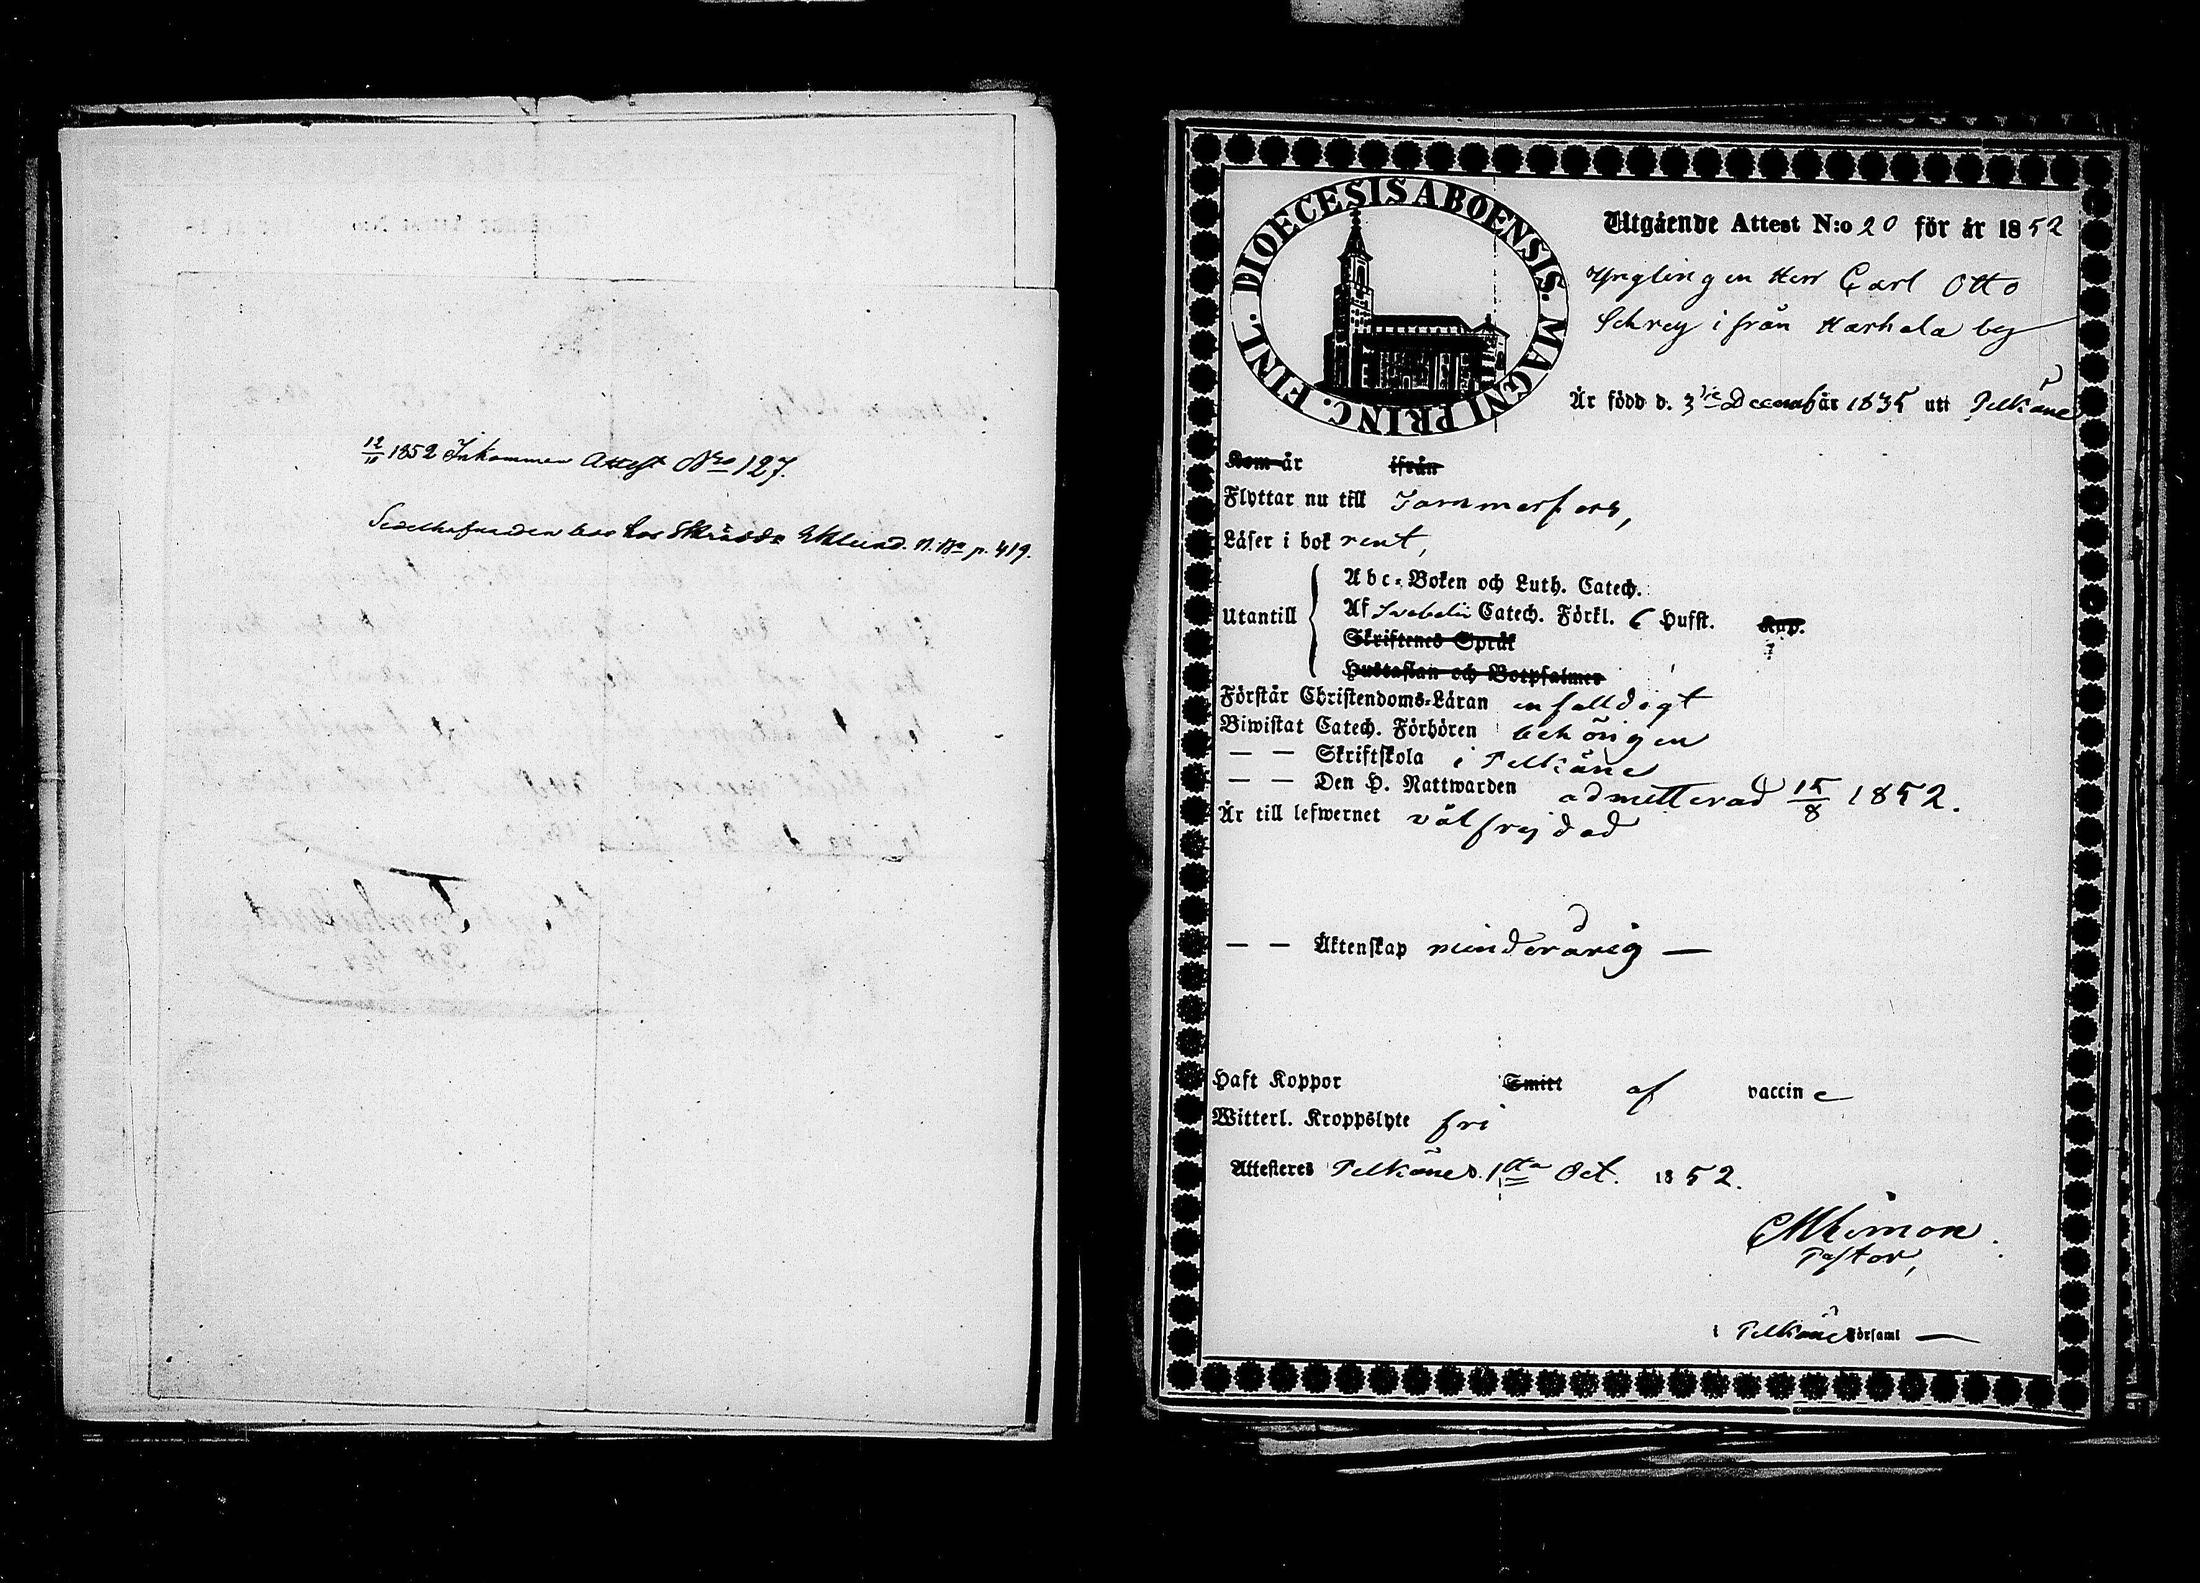 12/11 1852 Inkommen Attest Nro 127.
Sedelhafvanden bor hos Skräddr Eklund. N. Bo p. 419.
DIOECESIS ABOENSIS. MAGNI PRINC. FINL.
Utgående Attest N:o 20 för år 1852
Ynglingen Herr Carl Otto
Schrey ifrån Harhala by
Är född d. 3die Decemb år 1835 uti Pelkäne
Kom år ifrån
Flyttar nu till Tammerfors,
Läser i bok rent,
Utantill
Abc-Boken och Luth. Catech.
Af Svebelii Catech. Förkl. 6 Hufst. Kap.
Skriftenes Språk
Hustaflan och Botpsalmer
Förstår Christendoms-Läran enfalldigt
Biwistat Catech. Förhören behörigen
— — Skriftskola i Pelkäne
— — Den H. Nattwarden admitterad 15/8 1852.
Är till lefwernet välfrejdad
— — Äktenskap minderårig —
Haft Koppor Smitt af vaccine
Witterl. Kroppslyte fri
Attesteras Pelkäne d. 1sta Oct. 1852.
Pastor,
i Pelkäne Församl —